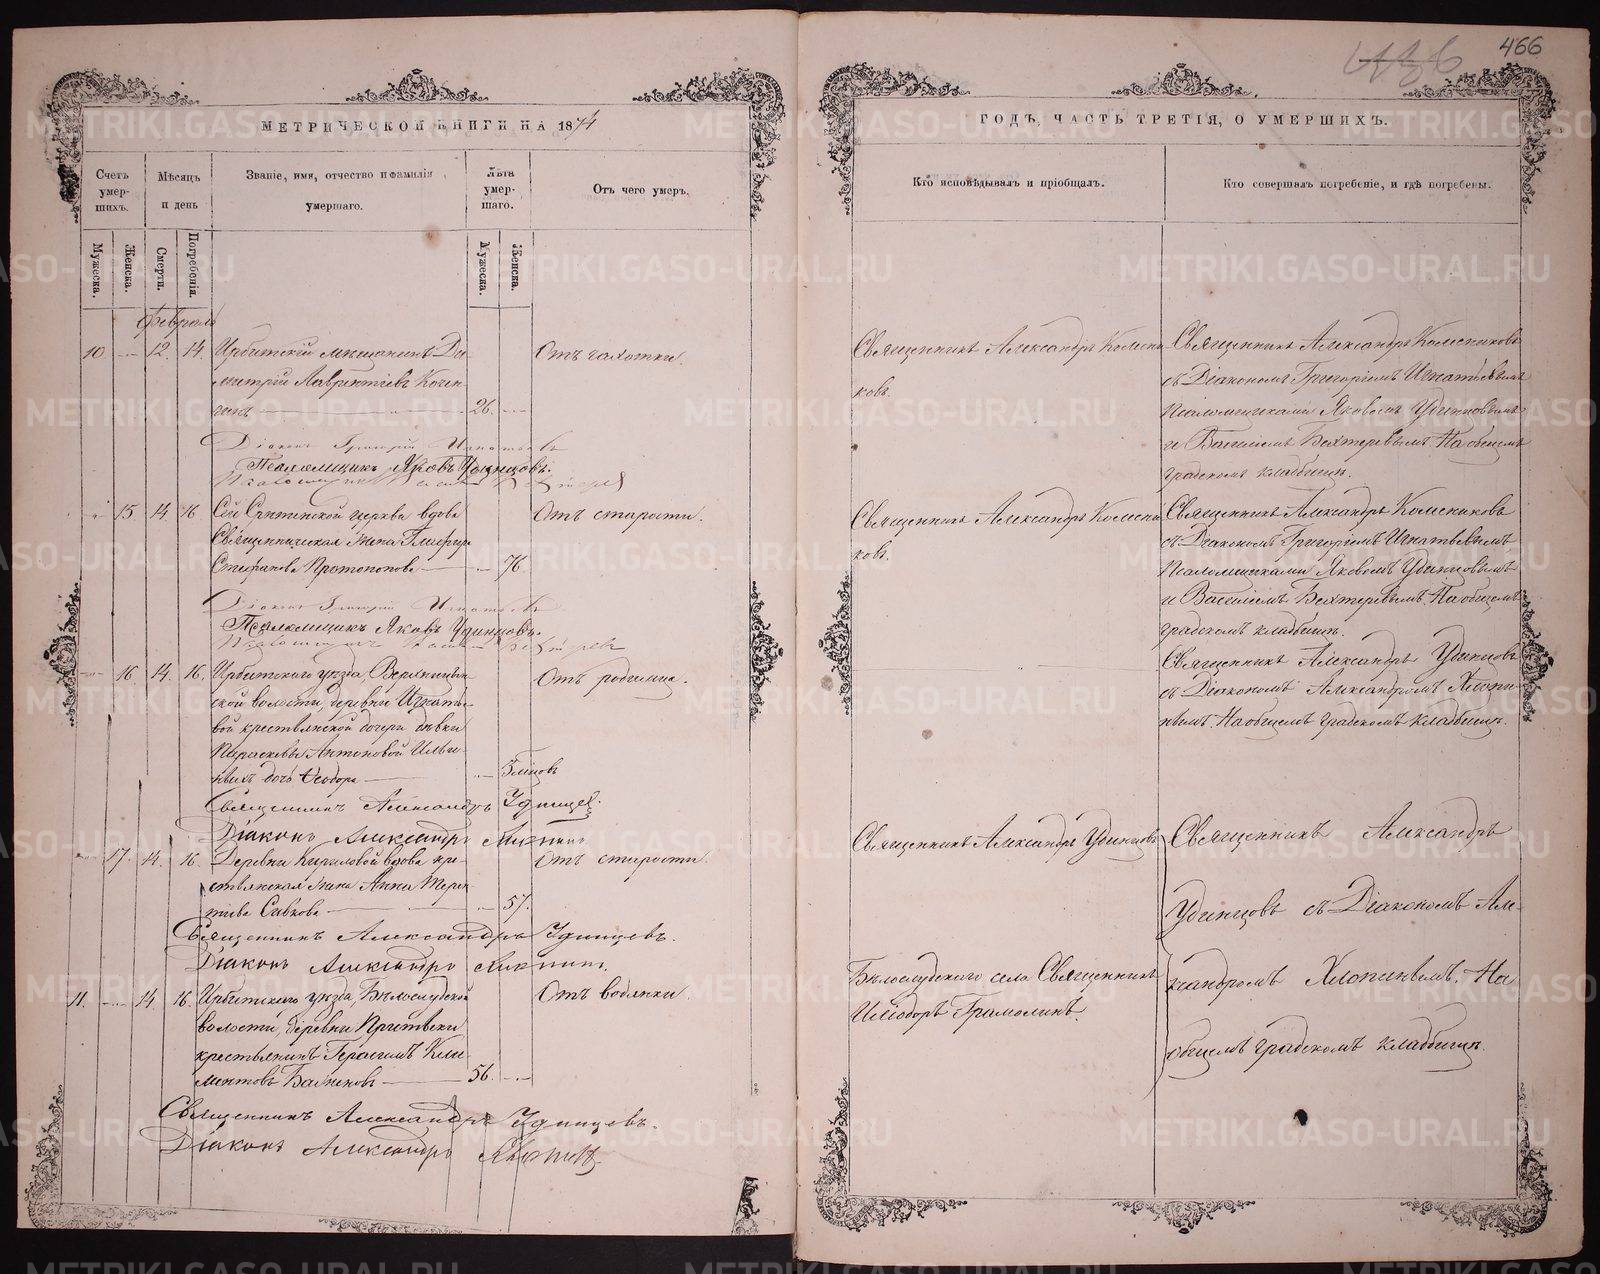 466
МЕТРИЧЕСКОЙ КНИГИ НА 1874
Счетъ умер- шихъ.
Мѣсяцъ и день
Званіе, имя, отчество и фамилія умершаго.
Лѣта умер- шаго.
Отъ чего умеръ.
Мужеска.
Женска.
Смерти.
Погребенія.
Мужеска.
Женска.
Февраль
10 12. 14. Ирбитскій мѣщанинъ Ди-
митрій Лаврентіевъ Кочен-
гинъ 26.
Отъ чахотки.
Діаконъ Григорій Игнатьевъ
Псаломщикъ Яковъ Удинцовъ.
15. 14. 16. Сей Срѣтенской церкви вдова
Священническая жена Глафира
Стефанова Протопопова 76.
Отъ старости.
Діаконъ Григорій Игнатьевъ
Псаломщикъ Яковъ Удинцовъ.
16. 14. 16. Ирбитскаго уѣзда,
ской волости, деревни Игнать-
вой крестьянской дочери дѣвки
Парасковьи Антоновой Ильи-
ныхъ дочь Ѳеодора
Отъ родимца.
Священникъ Александръ Удинцев.
Діаконъ Александръ
17. 14. 16. Деревни Кириловой вдова кре-
стьянская жена Анна Терен-
тіева Сивкова 57.
Отъ старости.
Священникъ Александръ Удинцевъ.
Діаконъ Александръ
11. 14. 16. Ирбитскаго уѣзда, Бѣлослудской
волости, деревни
крестьянинъ Герасимъ Кли-
ментовъ 56.
Отъ водянки.
Священникъ Александръ Удинцевъ.
Діаконъ Александръ
ГОДЪ, ЧАСТЬ ТРЕТІЯ, О УМЕРШИХЪ.
Кто исповѣдывалъ и пріобщалъ.
Кто совершалъ погребеніе, и гдѣ погребены.
Священникъ Александръ Колесни-
ковъ.
Священникъ Александръ Колесниковъ
съ Діакономъ Григоріемъ Игнатьевымъ
Псаломщиками Яковомъ Удинцовымъ
и Василіемъ Бехтеревымъ. На общемъ
градскомъ кладбищѣ.
Священникъ Александръ Колесни-
ковъ.
Священникъ Александръ Колесниковъ
съ Діакономъ Григоріемъ Игнатьевымъ
Псаломщиками Яковомъ Удинцовымъ
и Василіемъ Бехтеревымъ. На общемъ
градскомъ кладбищѣ.
Священникъ Александръ Удинцовъ
съ Діакономъ Александромъ Хлопи-
нымъ. На общемъ градскомъ кладбищѣ.
Священникъ Александръ Удинцовъ
Священникъ Александръ
Удинцовъ съ Діакономъ Але-
ксандромъ Хлопинымъ. На
общемъ градскомъ кладбищѣ.
Бѣлослудскаго села Священникъ
Иліодоръ Грамолинъ.
METRIKI.GASO-URAL.RU